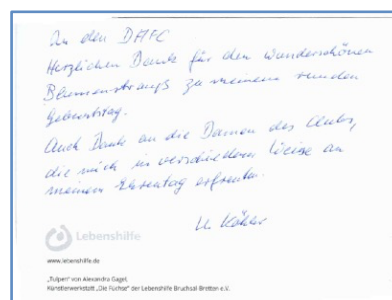 An den DAFC
Herzlichen Dank für den wunderschönen
Blumenstrauß zu meinem runden
Geburtstag.
Auch Dank an die Damen des Clubs,
die mich in verschiedener Weise an
meinem Ehrentag erfreuten.
Köhler
Lebenshilfe
www.lebenshilfe.de
„Tulpen“ von Alexandra Gagel,
Künstlerwerkstatt „Die Füchse“ der Lebenshilfe Bruchsal-Bretten e.V.